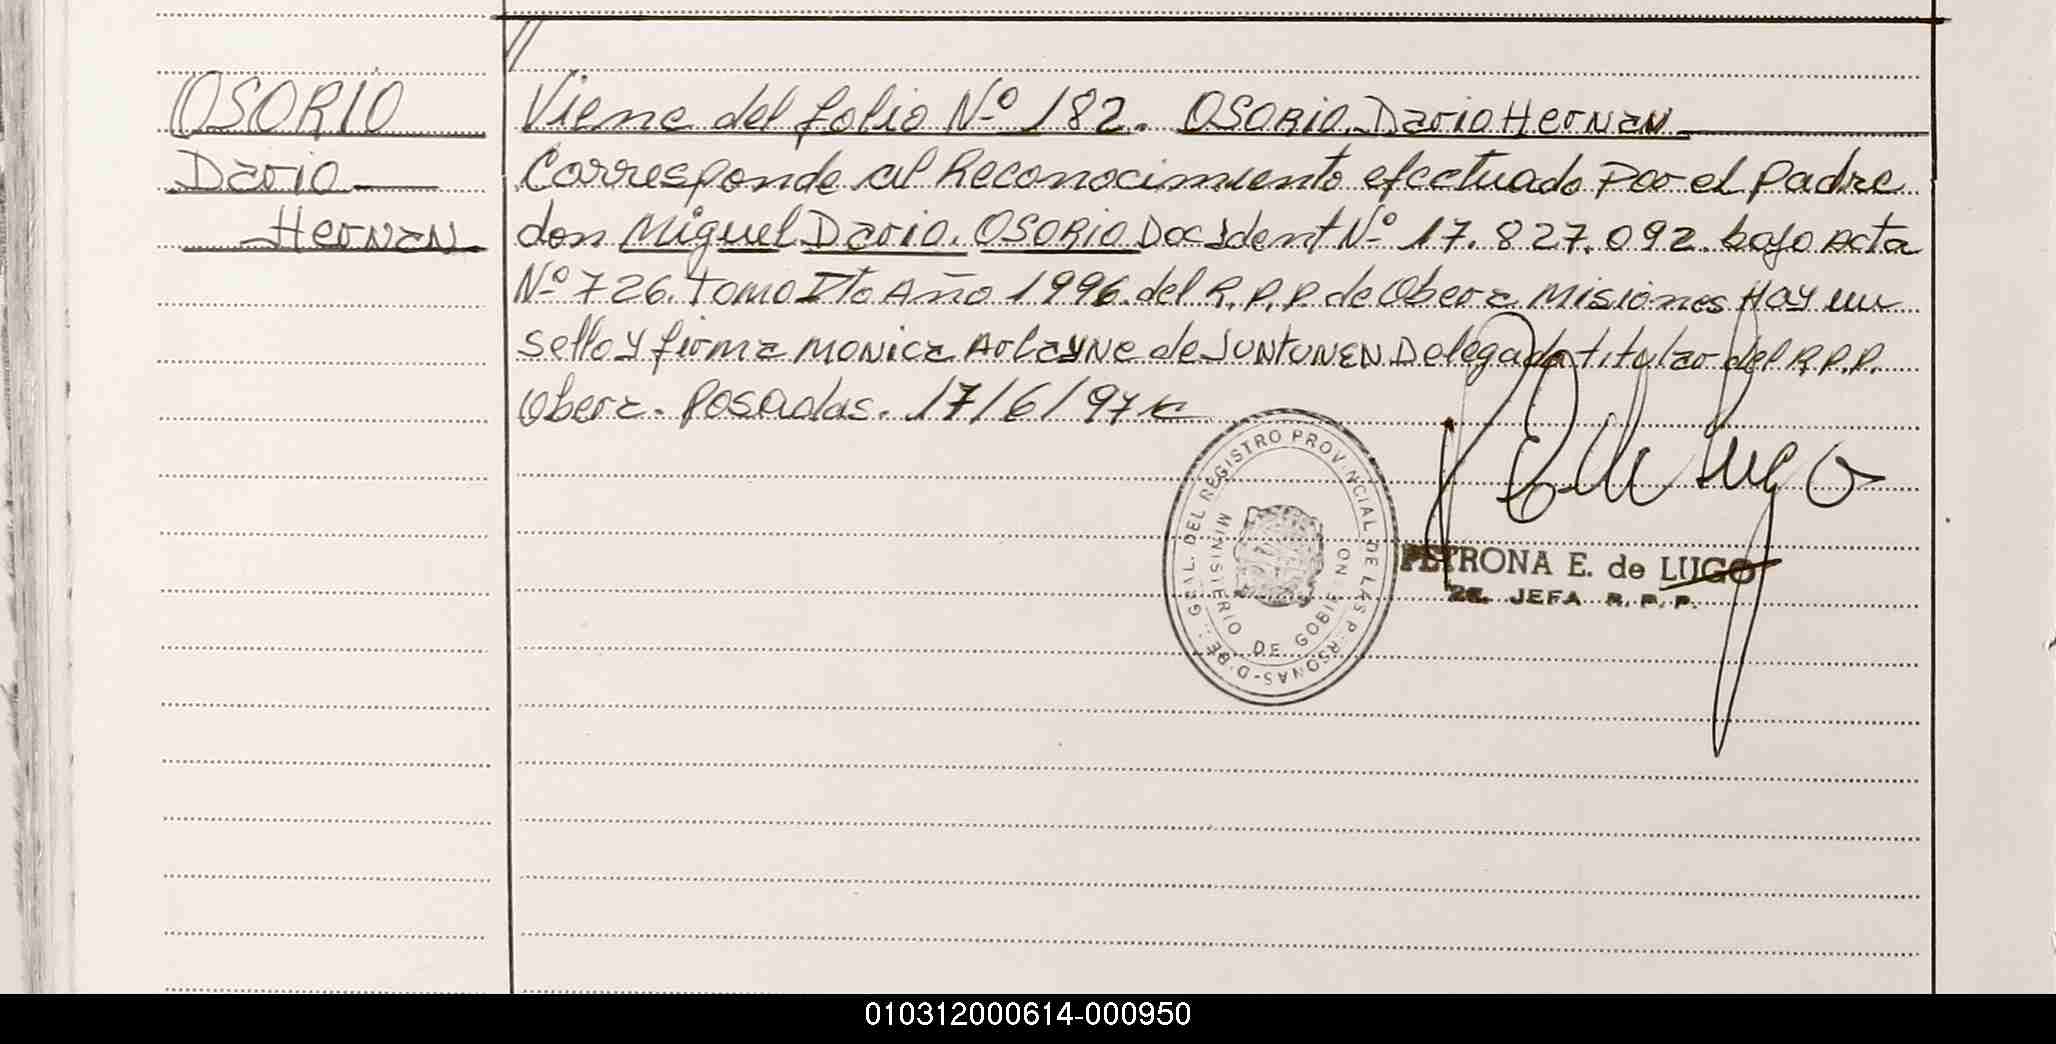 //
OSORIO
Dario
Hernan
Viene del folio Nº 182. OSORIO Dario Hernan
Corresponde al Reconocimiento efectuado Por el padre
don Miguel Dario. OSORIO Doc Ident Nº 17.827.092. bajo acta
Nº 726. Tomo Ito Año 1996. del R.P.P de Obera Misiones Hay un
sello y firma MONICA Arlayne de JUNTUNEN Delegada titular del R.P.P.
Obera. Posadas. 17/6/97
DEL REGISTRO PROVINCIAL DE LAS PERSONAS
MINISTERIO DE GOBIERNO
PETRONA E. de LUGO
JEFA R.P.P.
010312000614-000950